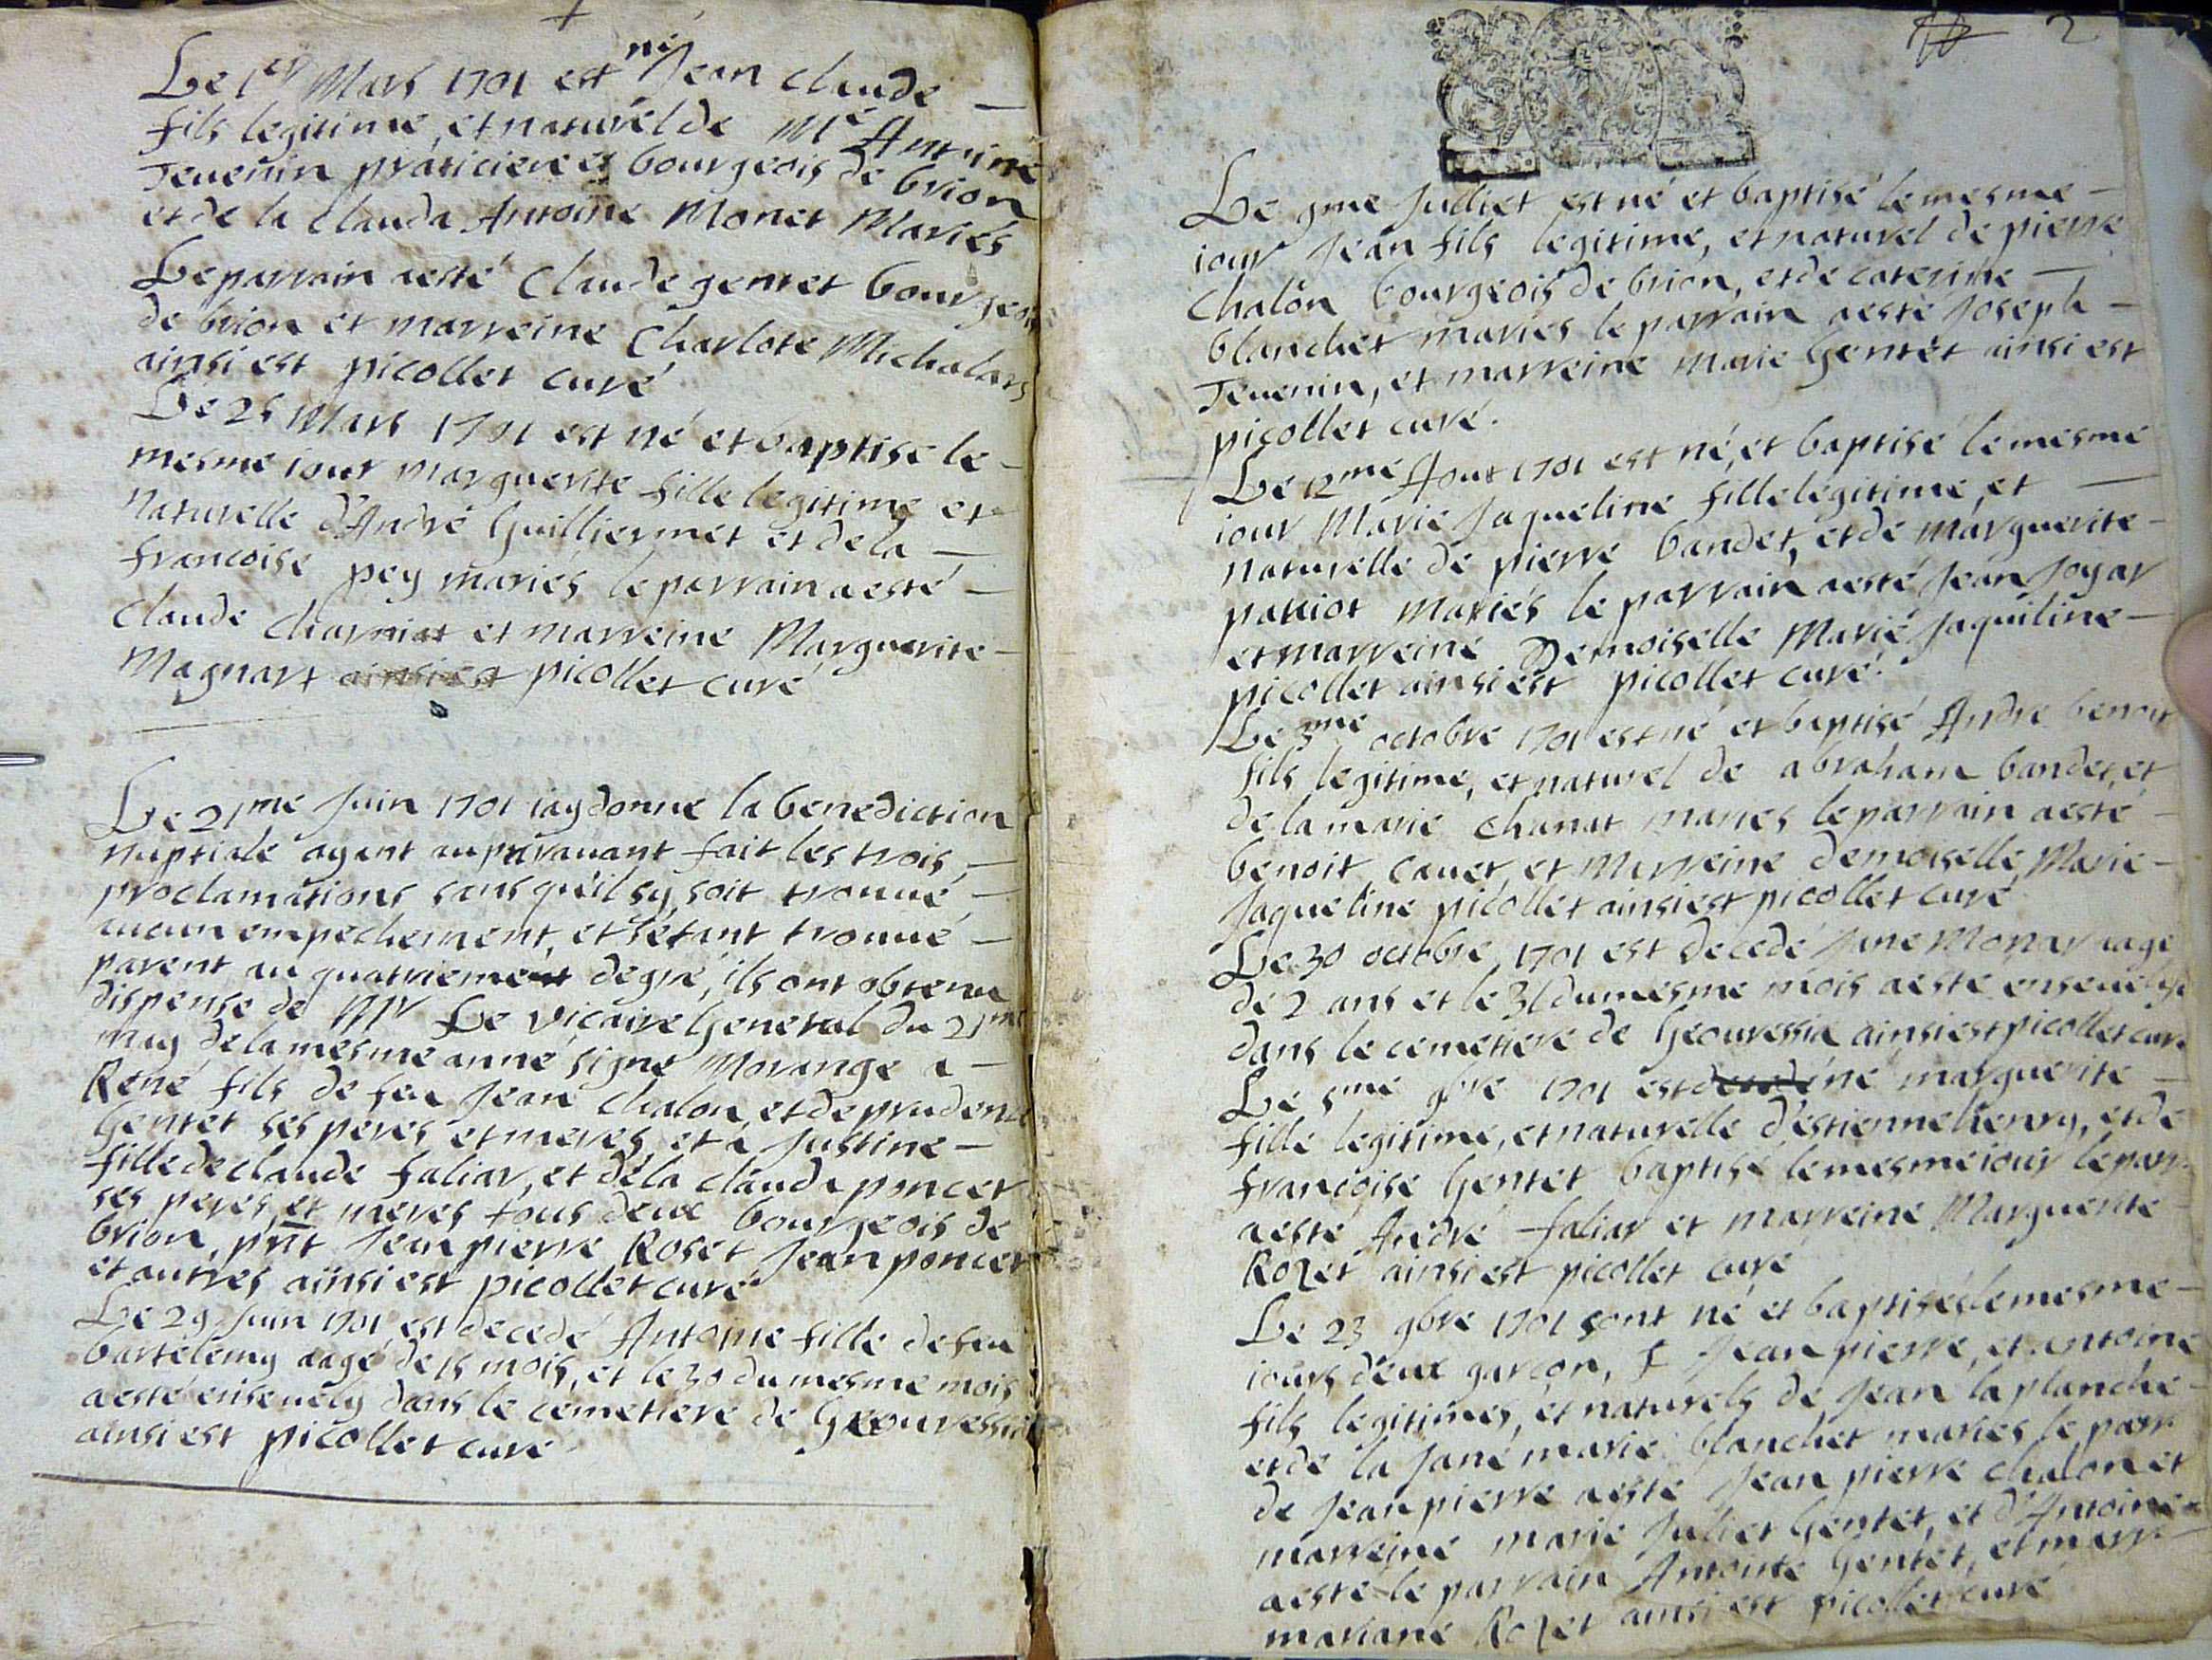 Le 1er Mars 1701 est né Jean Claude —
fils legitime, et naturel de Me Antoine
Tevenin praticiere et bourgeois de brion
et de la Clauda Antoine Monet Mariés
Le parrain a esté Claude gentet bourgeois
de brion et marreine Charlote Michalars
ainsi est picollet curé
Le 25 Mars 1701 est né et baptisé le —
mesme iour Marguerite fille legitime et
naturelle d'André Guilliermet et de la —
francoise pey mariés le parrain a esté —
Claude Charniat et marreine Marguerite —
Magnart ainsi est picollet curé
Le 21me Juin 1701 iay donné la benediction
nuptiale ayant auparavant fait les trois —
proclamations sans qu'il sy soit trouué —
aucun empechement, et s'etant trouué —
parent au quatrieme degré, ils ont obtenu
dispense de Mr Le Vicaire General du 21me
may de la mesme anné signé Morange a —
René fils de feu Jean Chalon et de prudence
Gentet ses peres et meres, et a Justine —
fille de Claude faliar, et de la Clauda poncet
ses peres, et meres tous deux bourgeois de
brion, pnt Jean pierre Roset Jean poncet
et autres ainsi est picollet curé
Le 29 Juin 1701 est decedé Antoine fille de feu
bartelemy aagé de 15 mois, et le 30 du mesme mois
a esté enseuely dans le cemetiere de Geouressia
ainsi est picollet curé
2
Le 9me Julliet est né et baptisé le mesme —
iour Jean fils legitime, et naturel de pierre
Chalon bourgeois de brion, et de caterine —
blanchet mariés le parrain a esté Joseph —
Tevenin, et marreine Marie Gentet ainsi est
picollet curé.
Le 12me Aout 1701 est né, et baptisé le mesme
iour Marie Jaqueline fille legitime et —
naturelle de pierre bandet, et de marguerite —
patriot Mariés le parrain a esté Jean Joyar
et marreine Demoiselle Marie Jaquiline —
picollet ainsi est picollet curé.
Le 3me octobre 1701 est né et baptisé Andre benoit
fils legitime, et naturel de abraham bandet, et
de la marie Chanat mariés le parrain a esté —
benoit cauet, et Marreine demoiselle Marie —
Jaqueline picollet ainsi est picollet curé
Le 30 octobre 1701 est decedé Jane Monar aagé
de 2 ans et le 31 du mesme mois a esté enseuely
dans le cemetiere de Geouressia ainsi est picollet curé
Le 5me 9bre 1701 est né marguerite —
fille legitime, et naturelle d'estienne henry, et de
francoise Gentet baptisé le mesme iour le parr.
a esté André faliar et marreine Marguerite
Rozet ainsi est picollet curé
Le 23 9bre 1701 sont né et baptisé le mesme —
iours deux garcon, Jean pierre, et antoine
fils legitimes, et naturels de Jean la planche —
et de la Jane marie blanchet mariés le parr
de Jean pierre a esté Jean pierre Chalon et
marreine marie Julliet Gentet, et d'Antoine —
a esté le parrain Antoine Gentet, et marr —
mariane Rozet ainsi est picollet curé